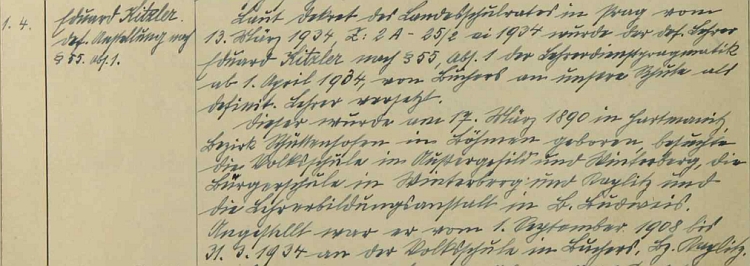 1. 4.
Eduard Kitzler.
def. Anstellung nach
§ 55. abs. 1.
Laut Dekret des Landesschulrates in Prag vom
13. März 1934, Z: 2A - 25/2 ai 1934 wurde der def. Lehrer
Eduard Kitzler nach § 55, abs. 1 der Lehrerdienstpragmatik
ab 1. April 1934, von Buchers an unsere Schule als
definit. Lehrer versetzt.
Dieser wurde am 17. März 1890 in Hartmanitz,
Bezirk Schüttenhofen in Böhmen geboren, besuchte
die Volksschule in Außergefild und Winterberg, die
Bürgerschule in Winterberg und Kaplitz und
die Lehrerbildungsanstalt in B. Budweis.
Angestellt war er vom 1. September 1908 bis
31. 3. 1934 an der Volksschule in Buchers, Bz. Kaplitz.